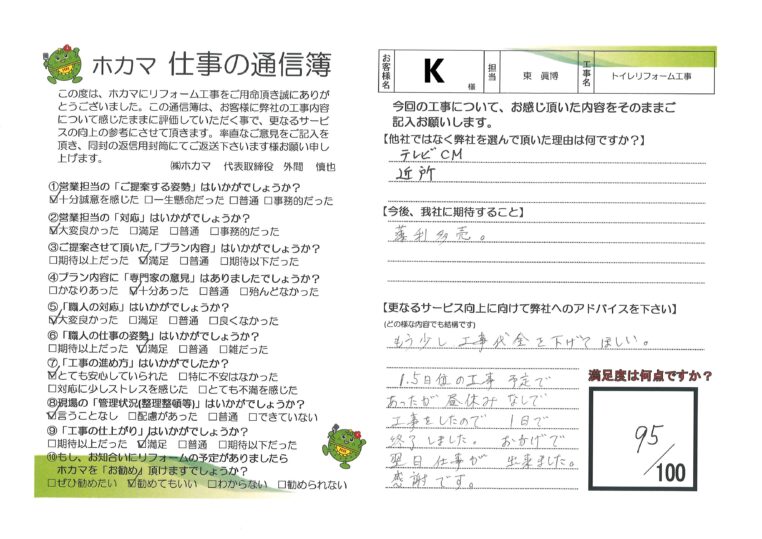 ホカマ 仕事の通信簿
この度は、ホカマにリフォーム工事をご用命頂き誠にありが
とうございました。この通信簿は、お客様に弊社の工事内容
について感じたままに評価していただく事で、更なるサービ
スの向上の参考にさせて頂きます。率直なご意見をご記入を
頂き、同封の返信用封筒にてご返送下さいます様お願い申し
上げます。
㈱ホカマ 代表取締役 外間 慎也
①営業担当の「ご提案する姿勢」はいかがでしょうか？
☑十分誠意を感じた □一生懸命だった □普通 □事務的だった
②営業担当の「対応」はいかがでしょうか？
☑大変良かった □満足 □普通 □事務的だった
③ご提案させて頂いた「プラン内容」はいかがでしょうか？
□期待以上だった ☑満足 □普通 □期待以下だった
④プラン内容に「専門家の意見」はありましたでしょうか？
□かなりあった ☑十分あった □普通 □殆んどなかった
⑤「職人の対応」はいかがでしょうか？
☑大変良かった □満足 □普通 □良くなかった
⑥「職人の仕事の姿勢」はいかがでしょうか？
□期待以上だった ☑満足 □普通 □雑だった
⑦「工事の進め方」はいかがでしたか？
☑とても安心していられた □特に不安はなかった
□対応に少しストレスを感じた □とても不満を感じた
⑧現場の「管理状況(整理整頓等)」はいかがでしょうか？
☑言うことなし □配慮があった □普通 □できていない
⑨「工事の仕上がり」はいかがでしょうか？
□期待以上だった ☑満足 □普通 □期待以下だった
⑩もし、お知合いにリフォームの予定がありましたら
ホカマを「お勧め」頂けますでしょうか？
□ぜひ勧めたい ☑勧めてもいい □わからない □勧められない
お客様名 K 様 担当 東 眞博 工事名 トイレリフォーム工事
今回の工事について、お感じ頂いた内容をそのままご
記入お願いします。
【他社ではなく弊社を選んで頂いた理由は何ですか？】
テレビCM
近所
【今後、我社に期待すること】
薄利多売。
【更なるサービス向上に向けて弊社へのアドバイスを下さい】
(どの様な内容でも結構です)
もう少し工事代金を下げてほしい。
1.5日位の工事予定で
あったが昼休みなしで
工事をしたので 1日で
終了しました。おかげで
翌日仕事が出来ました。
感謝です。
満足度は何点ですか？
95
/100